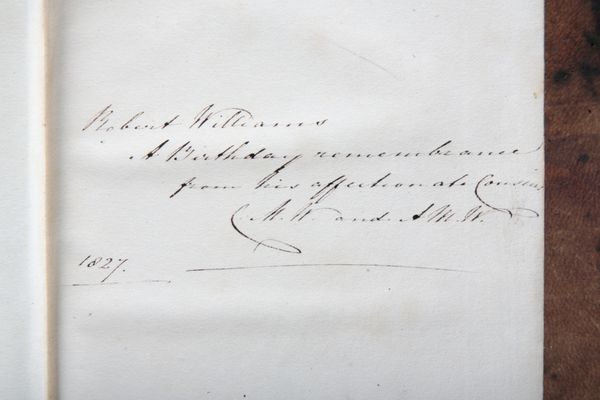 Robert Williams
A Birthday remembrance
from his affectionate Cousins
C. M. W. and A M W.
1827.